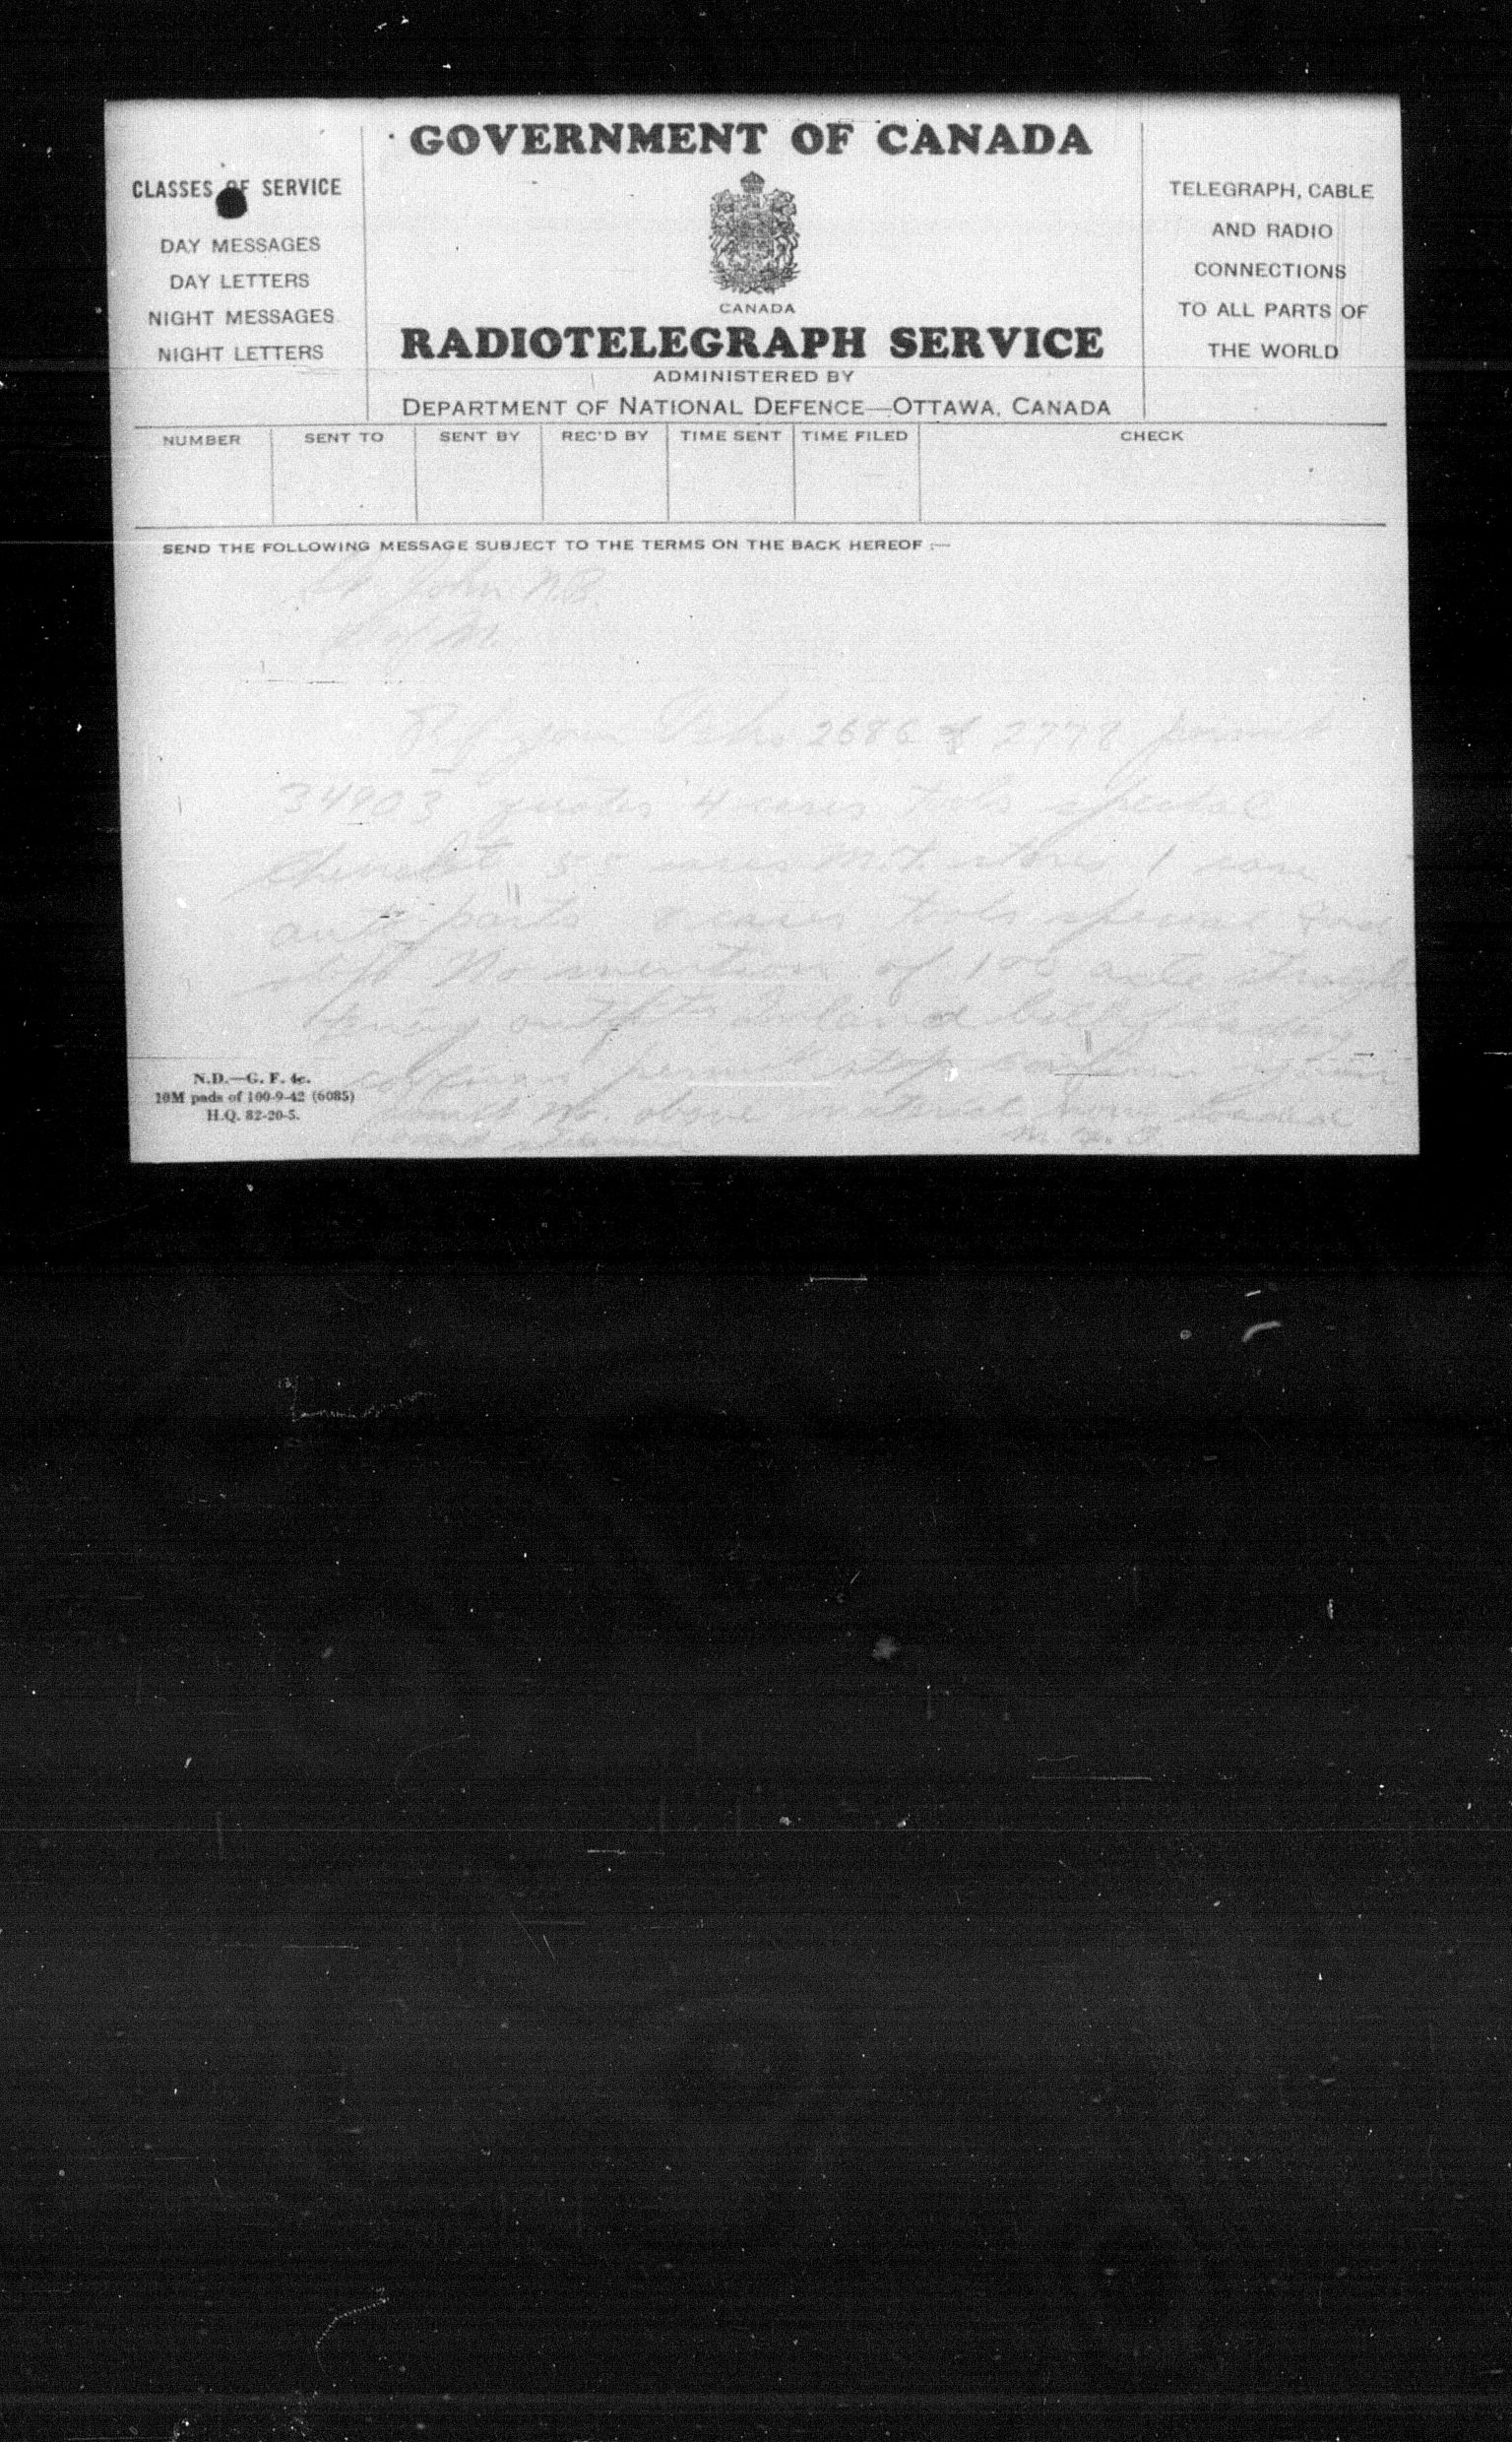 GOVERNMENT OF CANADA
CLASSES OF SERVICE
DAY MESSAGES
DAY LETTERS
NIGHT MESSAGES
NIGHT LETTERS
CANADA
RADIOTELEGRAPH SERVICE
ADMINISTERED BY
DEPARTMENT OF NATIONAL DEFENCE—OTTAWA, CANADA
TELEGRAPH, CABLE
AND RADIO
CONNECTIONS
TO ALL PARTS OF
THE WORLD
NUMBER SENT TO SENT BY REC'D BY TIME SENT TIME FILED CHECK
SEND THE FOLLOWING MESSAGE SUBJECT TO THE TERMS ON THE BACK HEREOF :—
St John N.B.
Ref your 2686 & 2778 permit
34903 quotes 4 cases tools special
Chevrolet cases M.T. stores 1 case
auto parts 8 cases tools special
No mention of 100 axle
outfit Inland bill of lading
permit stop
permit No. above
N.D.—G. F. 4c.
10M pads of 100-9-42 (6085)
H.Q. 82-20-5.